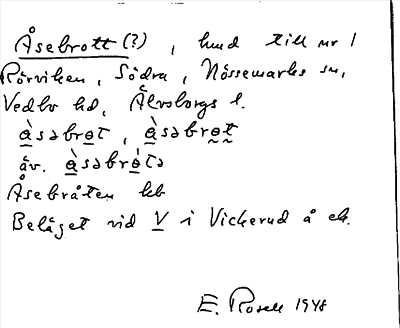 Åsebrott (?), hmd till nr 1
Rörviken, Södra, Nössemarks sn,
Vedbo hd, Älvsborgs l.
å̀səbrot, å̀səbrot
äv. å̀səbrǻtə
Åsebråten kb
Beläget vid V i Vickerud å ek.
E. Rosell 1948